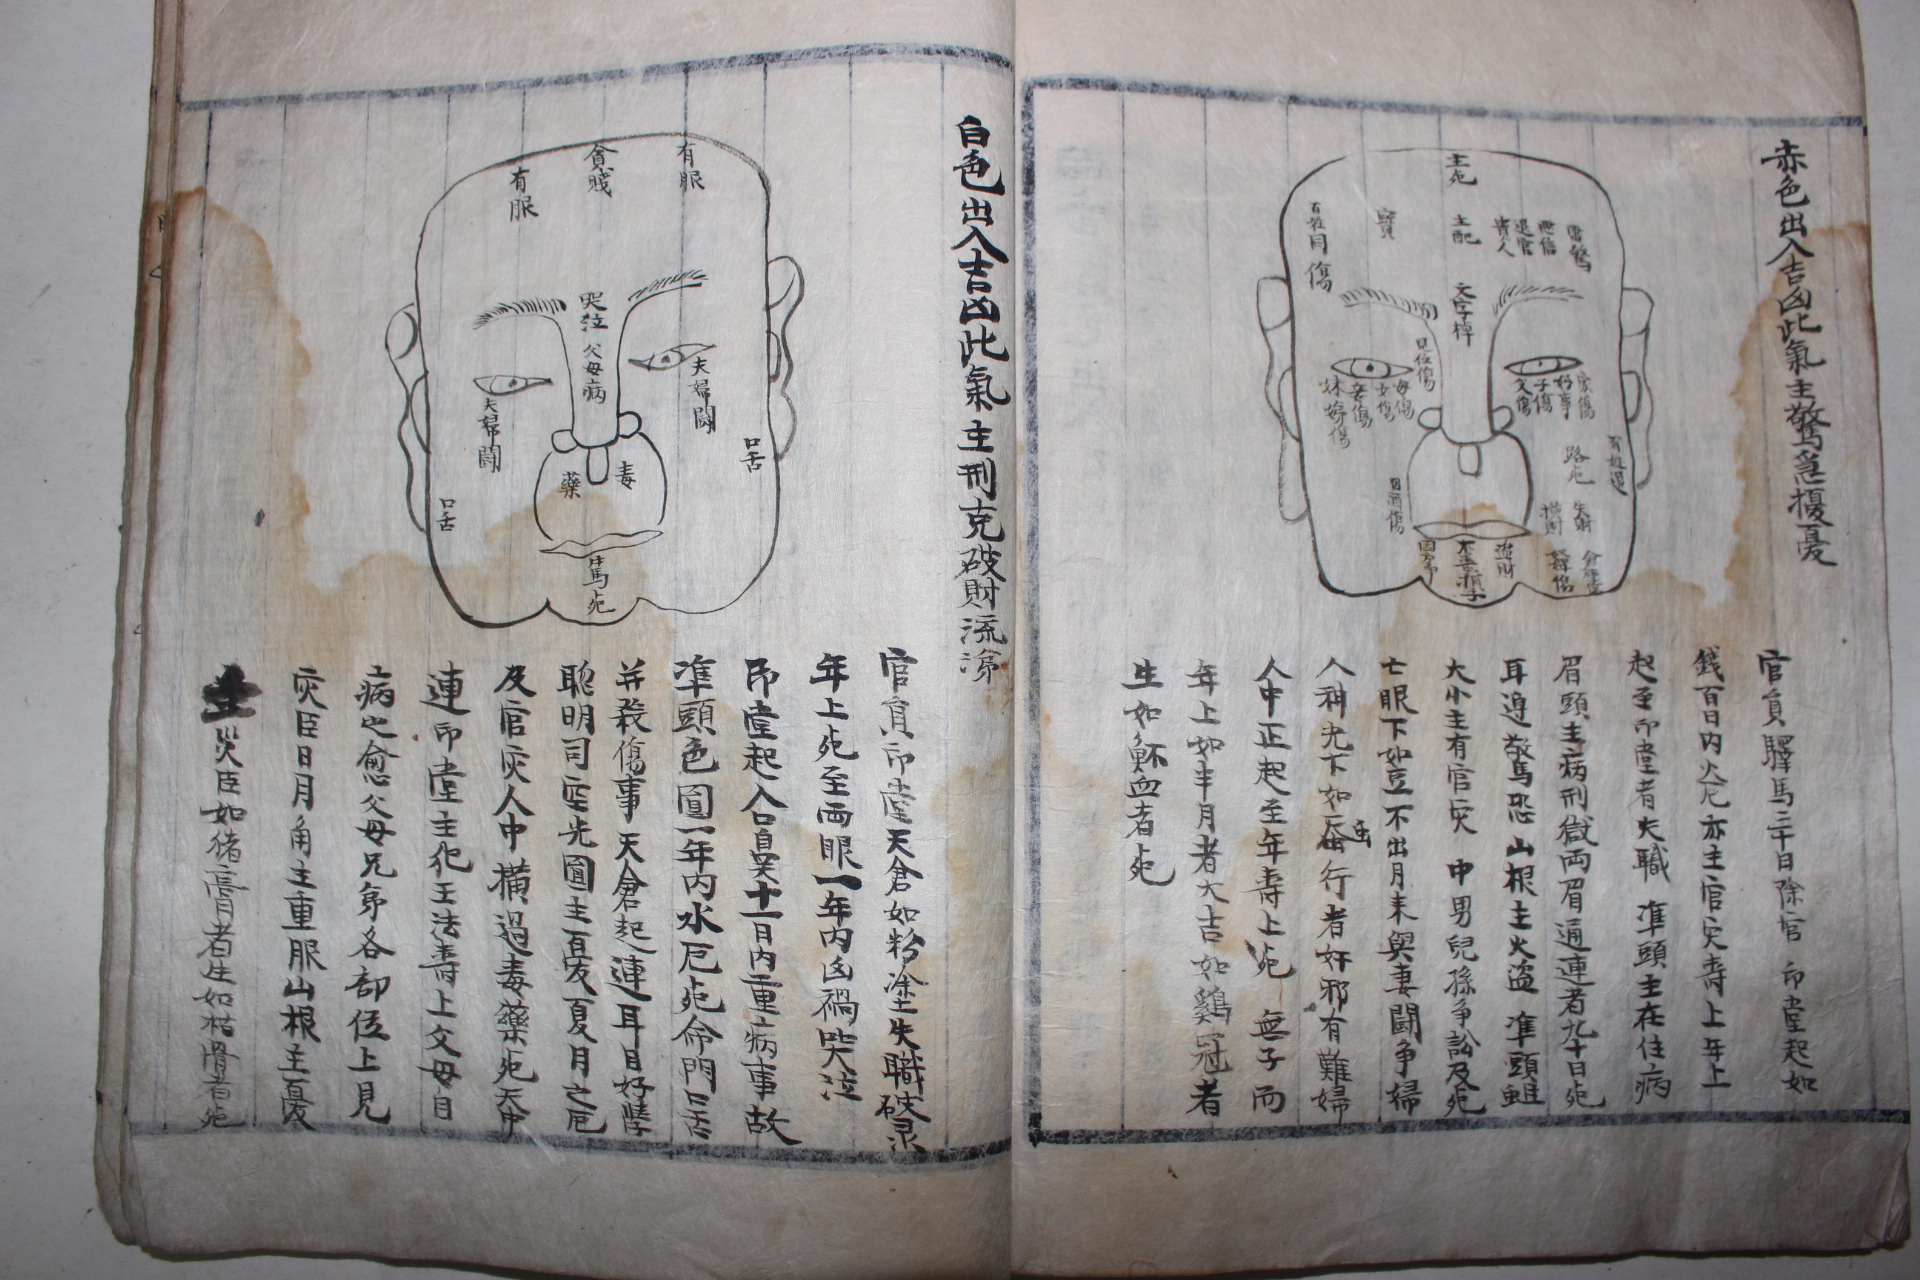 赤色出入吉凶此氣主驚急擾憂
主死
主配
天字悼
百姓同傷
貴人
退官
見位傷
母傷
女傷
妾傷
妹婦傷
父傷
子傷
好事
路死
失財
橫財
盜財
官員驛馬二十日除官 印堂起如
錢百日內火厄亦主官灾壽上年上
起至印堂者失職 準頭主在住病
眉頭主病刑獄兩眉通連者九十日死
耳邊驚恐山根主火盜 準頭蛆
大小主有官灾 中男兒孫爭訟及死
七眼下如豆不出月末與妻鬪爭婦
人神光下如蚕虫行者奸邪有難婦
人中正起至年壽上死 無子而
年上如半月者大吉如鷄冠者
生如衃血者死
白色出入吉凶此氣主刑克破財流涕
有服
貧賤
有服
哭泣
父母病
夫婦鬪
夫婦鬪
口舌
口舌
毒
藥
牛馬死
官員印堂天倉如粉塗失職破彔
年上死至兩眼一年內凶禍哭泣
印堂起入口鼻十一月內重病事故
準頭色圓一年內水厄死命門口舌
并殺傷事天倉起連耳目好擘
聰明司空光圓主憂夏月之厄
及官灾人中橫過毒藥死天中
連印堂主犯王法壽上父母自
病也愈父母兄弟各部位上見
灾臣日月角主重服山根主憂
災臣如猪膏者生如枯骨者死